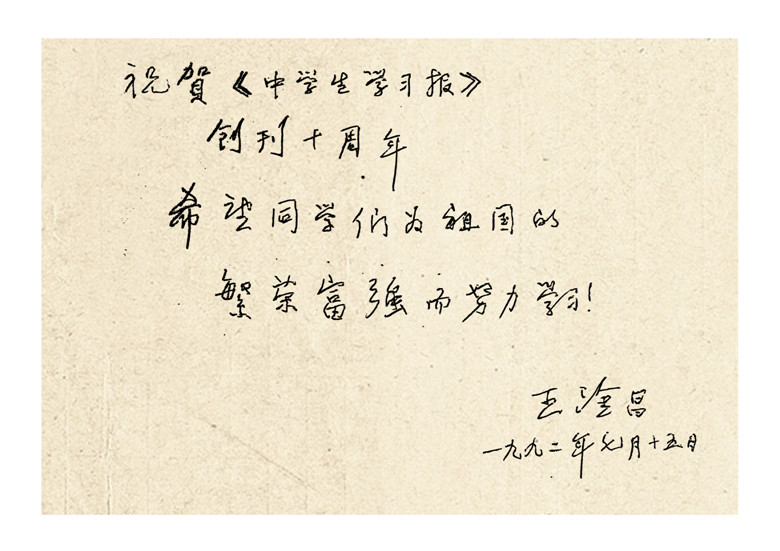 祝賀《中学生学习报》
创刊十周年
希望同学们为祖国的
繁荣富强而努力学习!
王淦昌
一九九二年元月十五日